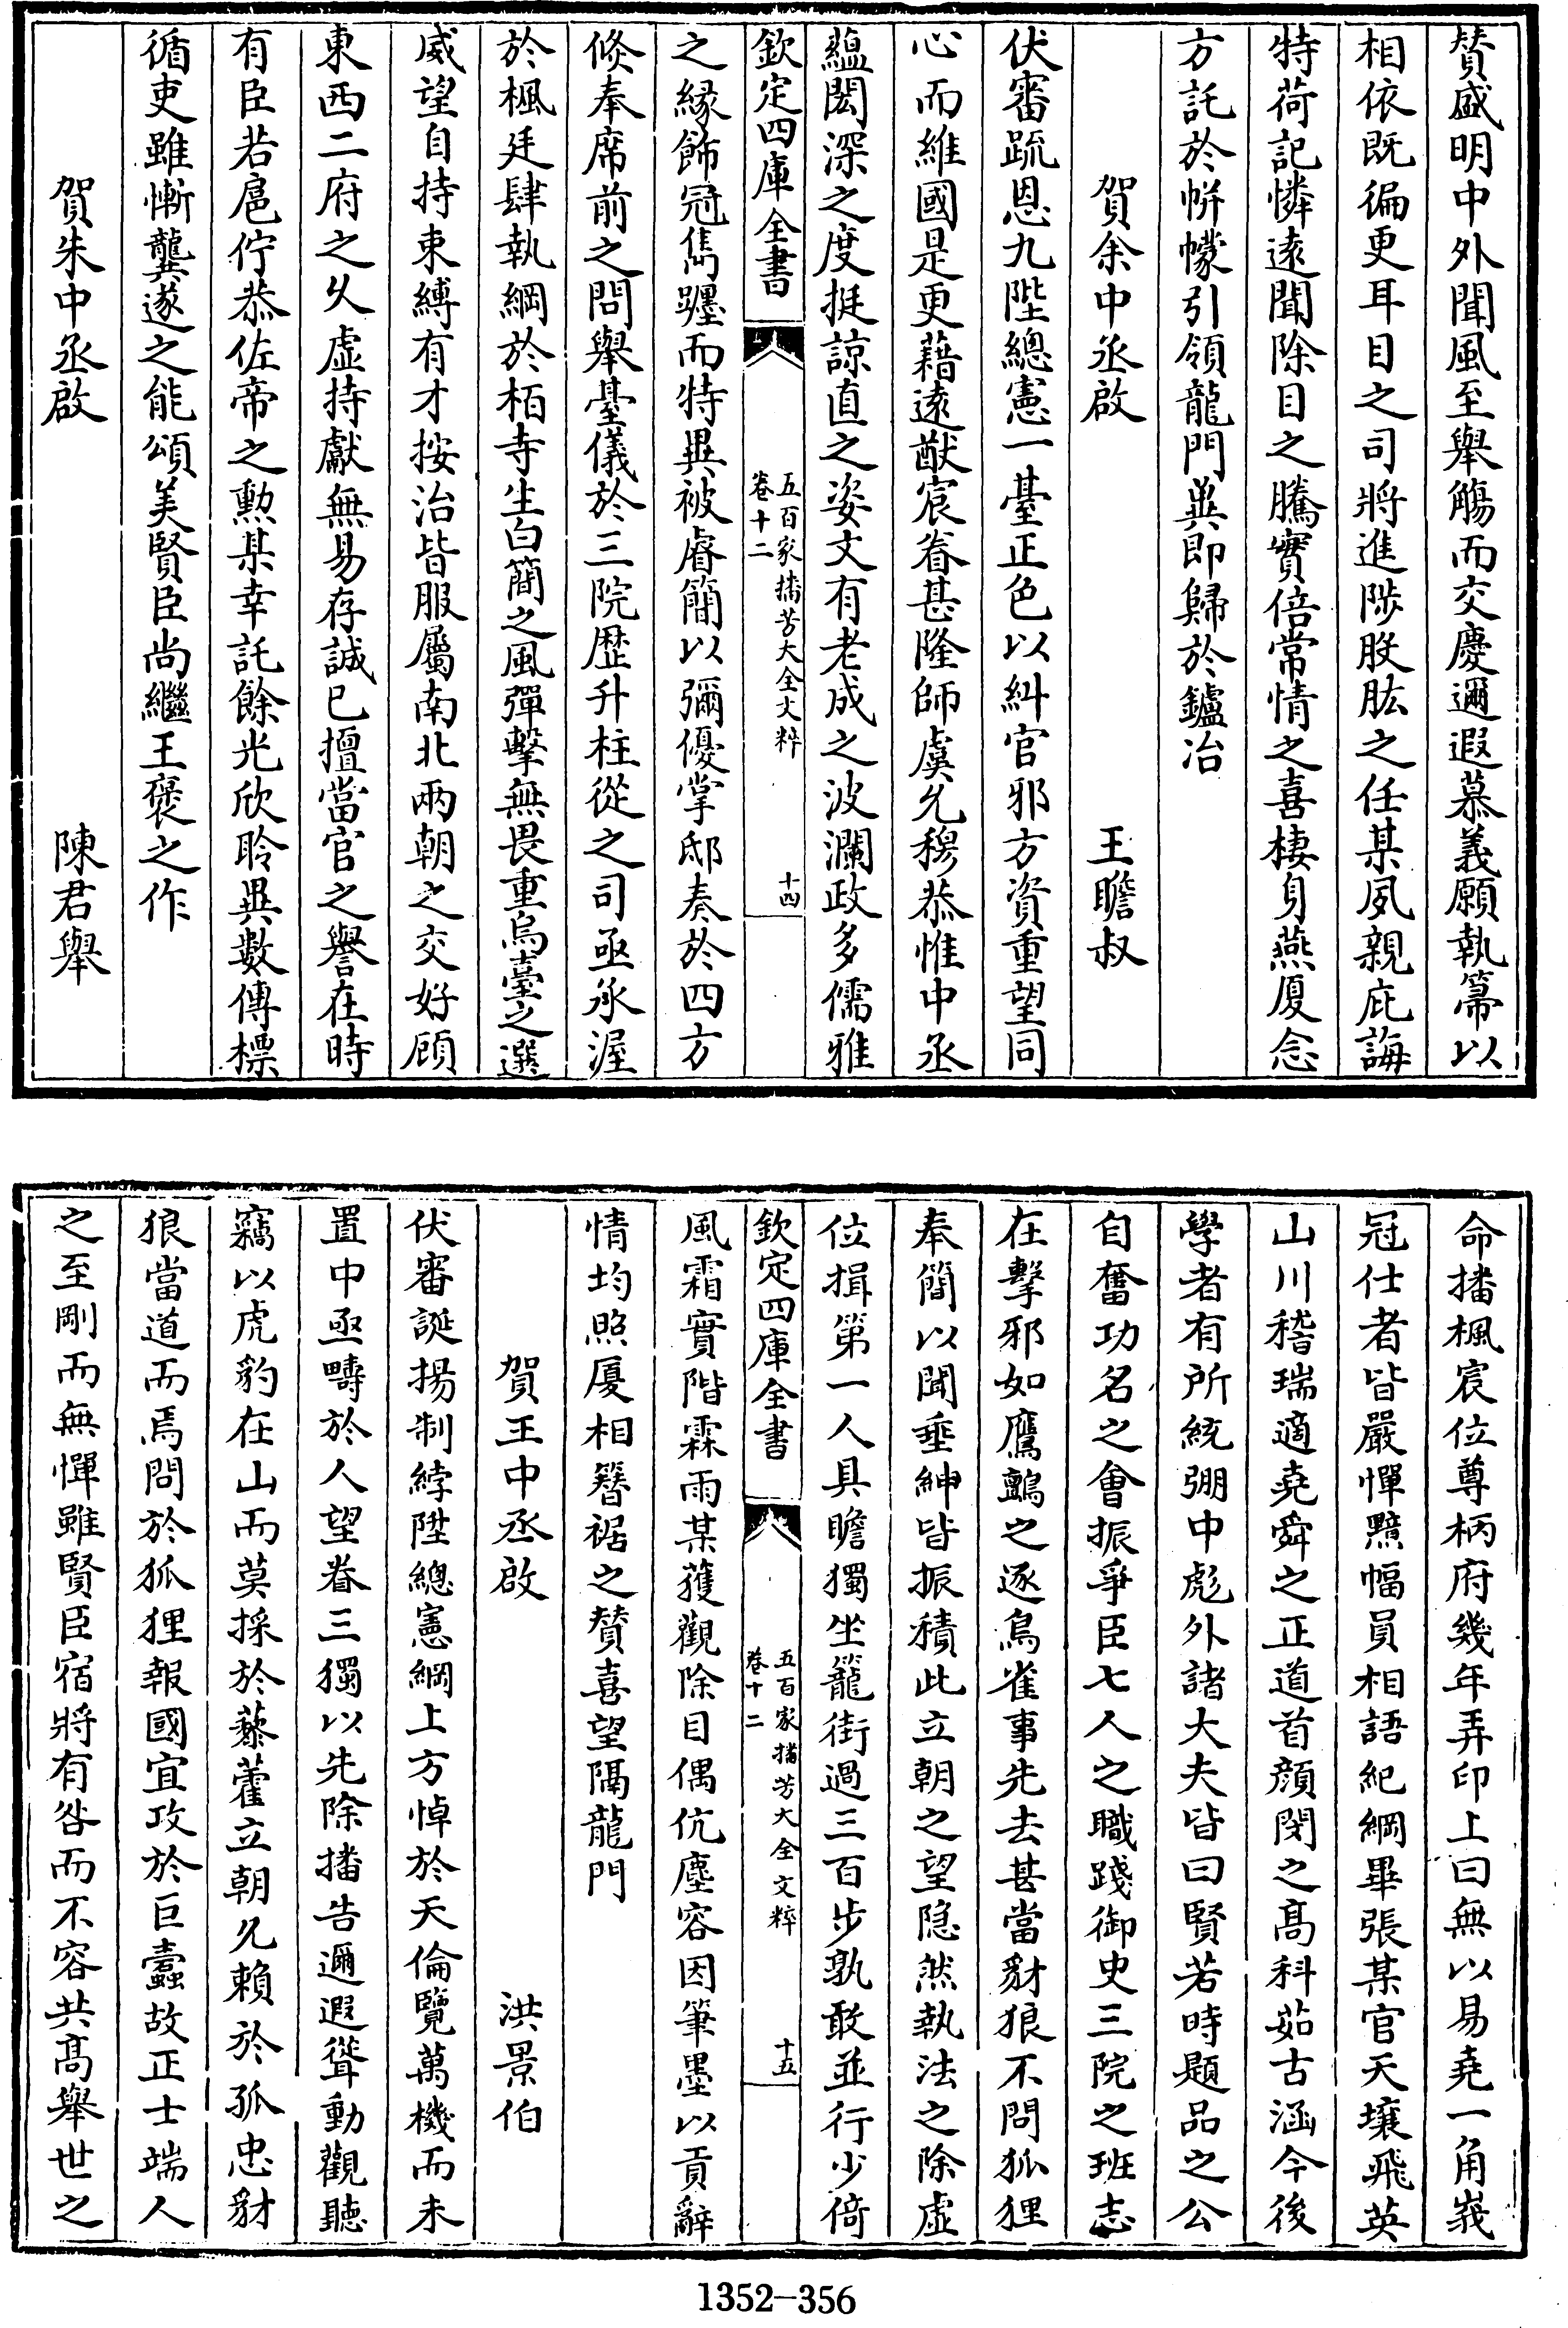 賛盛明中外聞風至舉觴而交慶邇遐慕義願執箒以
相依既徧更耳目之司將進陟股肱之任某夙親庇誨
特荷記憐逺聞除目之騰實倍常情之喜棲身燕厦念
方託於帡幪引領龍門兾即歸於鑪冶
賀余中丞啟 王瞻叔
伏審疏恩九陛總憲一臺正色以糾官邪方資重望同
心而維國是更藉逺猷宸眷甚隆師虞允穆恭惟中丞
藴閎深之度挺諒直之姿文有老成之波瀾政多儒雅
欽定四庫全書 五百家播芳大全文粹 卷十二 十四
之縁飾冠雋躔而特異被睿簡以彌優掌邸奏於四方
倐奉席前之問舉臺儀於三院歴升柱從之司亟承渥
於楓廷肆執綱於栢寺生白簡之風彈擊無畏重烏臺之選
威望自持束縛有才按治皆服屬南北兩朝之交好顧
東西二府之乆虛持獻無易存誠已擅當官之譽在時
有臣若扈佇恭佐帝之勲某幸託餘光欣聆異數傳標
循吏雖慚龔遂之能頌美賢臣尚繼王褒之作
賀朱中丞啟 陳君舉
命播楓宸位尊柄府幾年弄印上曰無以易堯一角峩
冠仕者皆嚴憚黯幅員相語紀綱畢張某官天壤飛英
山川稽瑞適堯舜之正道首顔閔之髙科茹古涵今後
學者有所統弸中彪外諸大夫皆曰賢若時題品之公
自奮功名之會振爭臣七人之職踐御史三院之班志
在擊邪如鷹鸇之逐鳥雀事先去甚當豺狼不問狐狸
奉簡以聞垂紳皆振積此立朝之望隐然執法之除虛
位揖第一人具瞻獨坐籠街過三百步孰敢並行少倚
欽定四庫全書 五百家播芳大全文粹 卷十二 十五
風霜實階霖雨某獲觀除目偶伉塵容因筆墨以貢辭
情均照厦相簪裾之賛喜望隔龍門
賀王中丞啟 洪景伯
伏審誕揚制綍陞總憲綱上方悼於天倫覽萬機而未
置中亟疇於人望眷三獨以先除播告邇遐聳動觀聽
竊以虎豹在山而莫採於藜藿立朝允賴於孤忠豺
狼當道而焉問於狐狸報國宜攻於巨蠧故正士端人
之至剛而無憚雖賢臣宿將有咎而不容共髙舉世之
1352-356